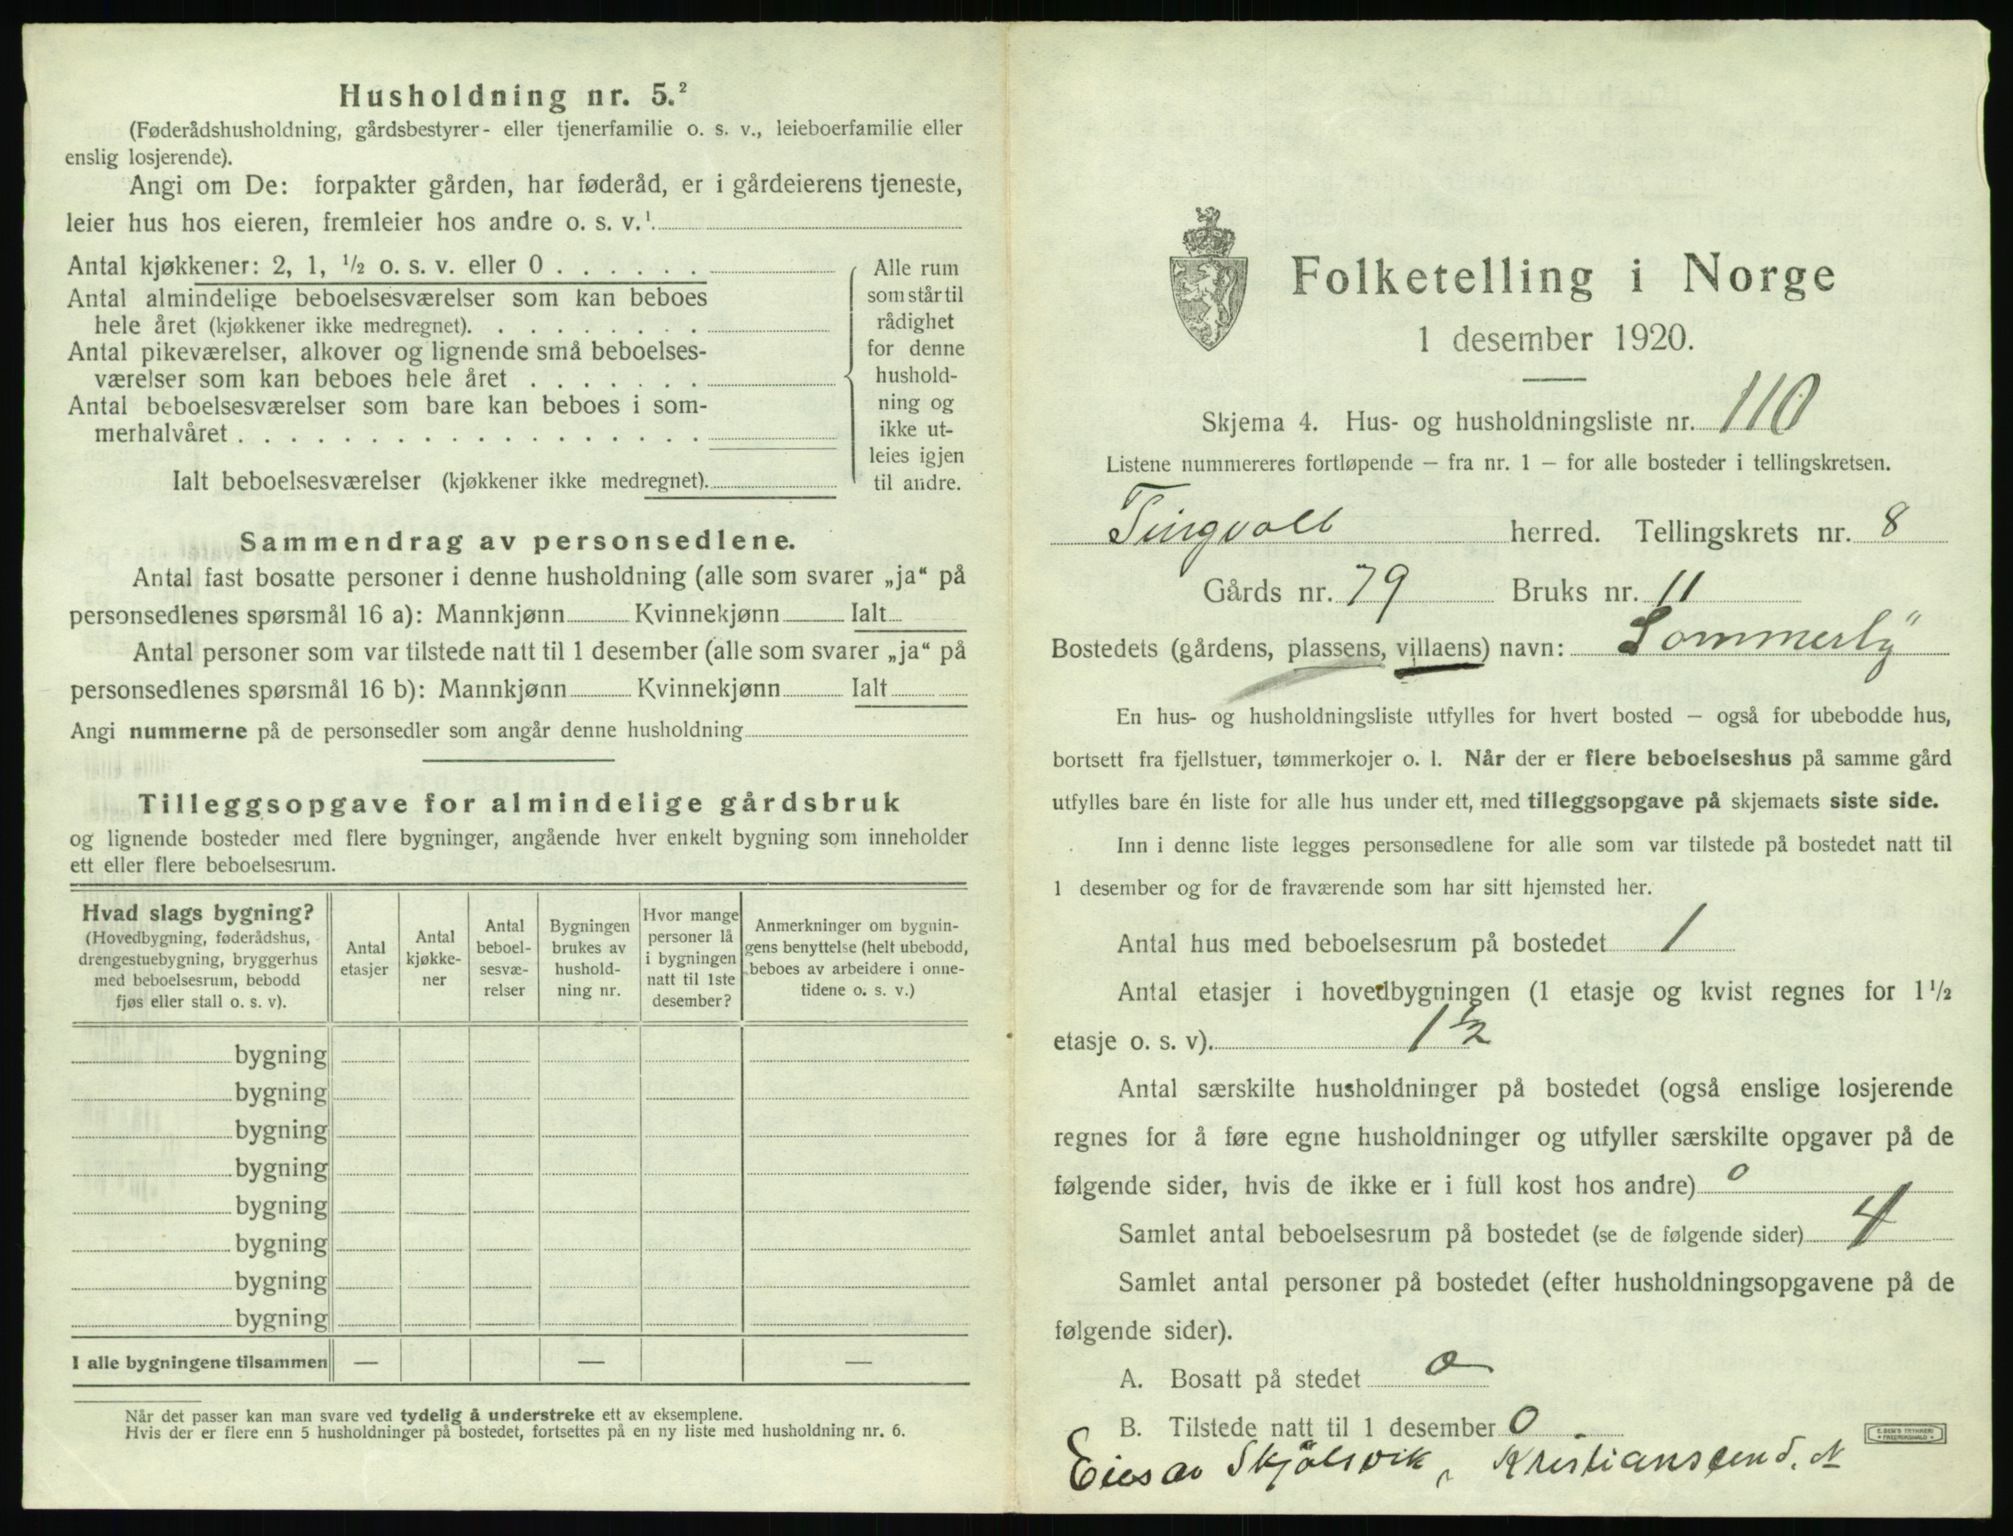 Husholdning nr. 5.²
(Føderådshusholdning, gårdsbestyrer- eller tjenerfamilie o. s. v., leieboerfamilie eller
enslig losjerende).
Angi om De: forpakter gården, har føderåd, er i gårdeierens tjeneste,
leier hus hos eieren, fremleier hos andre o. s. v.¹
Antal kjøkkener: 2, 1, ½ o. s. v. eller 0 . . . . . .
Antal almindelige beboelsesværelser som kan beboes
hele året (kjøkkener ikke medregnet). . . . . . . . .
Antal pikeværelser, alkover og lignende små beboelses-
værelser som kan beboes hele året . . . . . . .
Antal beboelsesværelser som bare kan beboes i som-
merhalvåret . . . . . . . . . . . . . . . . . .
Ialt beboelsesværelser (kjøkkener ikke medregnet).
Alle rum
som står til
rådighet
for denne
hushold-
ning og
ikke ut-
leies igjen
til andre.
Sammendrag av personsedlene.
Antal fast bosatte personer i denne husholdning (alle som svarer „ja“ på
personsedlenes spørsmål 16 a): Mannkjønn Kvinnekjønn Ialt
Antal personer som var tilstede natt til 1 desember (alle som svarer „ja“ på
personsedlenes spørsmål 16 b): Mannkjønn Kvinnekjønn Ialt
Angi nummerne på de personsedler som angår denne husholdning
Tilleggsopgave for almindelige gårdsbruk
og lignende bosteder med flere bygninger, angående hver enkelt bygning som inneholder
ett eller flere beboelsesrum.
Hvad slags bygning?
(Hovedbygning, føderådshus,
drengestuebygning, bryggerhus
med beboelsesrum, bebodd
fjøs eller stall o. s. v).
Antal
etasjer
Antal
kjøkke-
ner
Antal
beboel-
sesvæ-
relser
Bygningen
brukes av
hushold-
ning nr.
Hvor mange
personer lå
i bygningen
natt til 1ste
desember?
Anmerkninger om bygnin-
gens benyttelse (helt ubebodd,
beboes av arbeidere i onne-
tidene o. s. v.)
bygning
bygning
bygning
bygning
bygning
bygning
bygning
bygning
I alle bygningene tilsammen — — —
Når det passer kan man svare ved tydelig å understreke ett av eksemplene.
Hvis der er flere enn 5 husholdninger på bostedet, fortsettes på en ny liste med husholdning nr. 6.
Folketelling i Norge
1 desember 1920.
Skjema 4. Hus- og husholdningsliste nr. 110
Listene nummereres fortløpende — fra nr. 1 — for alle bosteder i tellingskretsen.
Tingvoll herred. Tellingskrets nr. 8
Gårds nr. 79 Bruks nr. 11
Bostedets (gårdens, plassens, villaens) navn: Sommerlÿ
En hus- og husholdningsliste utfylles for hvert bosted — også for ubebodde hus,
bortsett fra fjellstuer, tømmerkojer o. l. Når der er flere beboelseshus på samme gård
utfylles bare én liste for alle hus under ett, med tilleggsopgave på skjemaets siste side.
Inn i denne liste legges personsedlene for alle som var tilstede på bostedet natt til
1 desember og for de fraværende som har sitt hjemsted her.
Antal hus med beboelsesrum på bostedet 1
Antal etasjer i hovedbygningen (1 etasje og kvist regnes for 1½
etasje o. s. v). 1½
Antal særskilte husholdninger på bostedet (også enslige losjerende
regnes for å føre egne husholdninger og utfyller særskilte opgaver på de
følgende sider, hvis de ikke er i full kost hos andre) 0
Samlet antal beboelsesrum på bostedet (se de følgende sider) 4
Samlet antal personer på bostedet (efter husholdningsopgavene på de
følgende sider).
A. Bosatt på stedet 0
B. Tilstede natt til 1 desember 0
Skjölsvik, Kristianssund. N
E. SEM'S TRYKKERI
FREDRIKSHALD